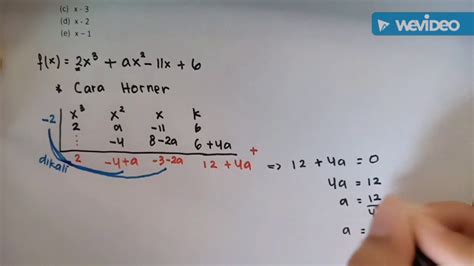 (c) x - 3
(d) x - 2
(e) x - 1
WEVIDEO
f(x) = 2x³ + ax² - 11x + 6
* Cara Horner
x³ x² x k
-2 2 a -11 6
: -4 8-2a 6+4a +
dikali 2 -4+a -3-2a 12+4a
=> 12 + 4a = 0
4a = 12
a = 12/4
a =